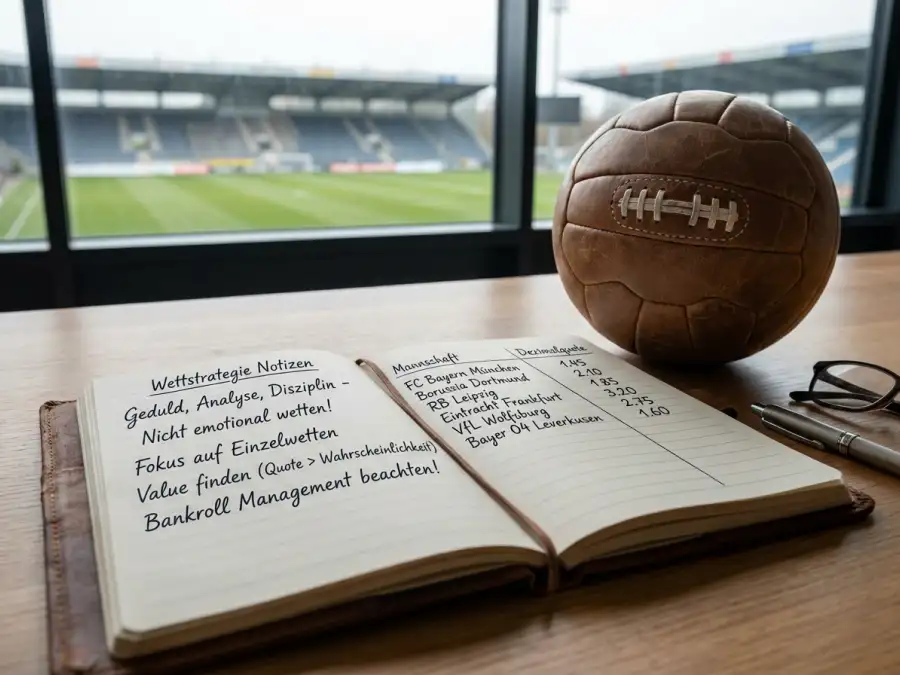 Wettstrategie Notizen
Geduld, Analyse, Disziplin -
Nicht emotional wetten!
Fokus auf Einzelwetten
Value finden (Quote > Wahrscheinlichkeit)
Bankroll Management beachten!
Mannschaft Dezimalquote
FC Bayern München 1.45
Borussia Dortmund 2.10
RB Leipzig 1.85
Eintracht Frankfurt 3.20
VfL Wolfsburg 2.75
Bayer 04 Leverkusen 1.60